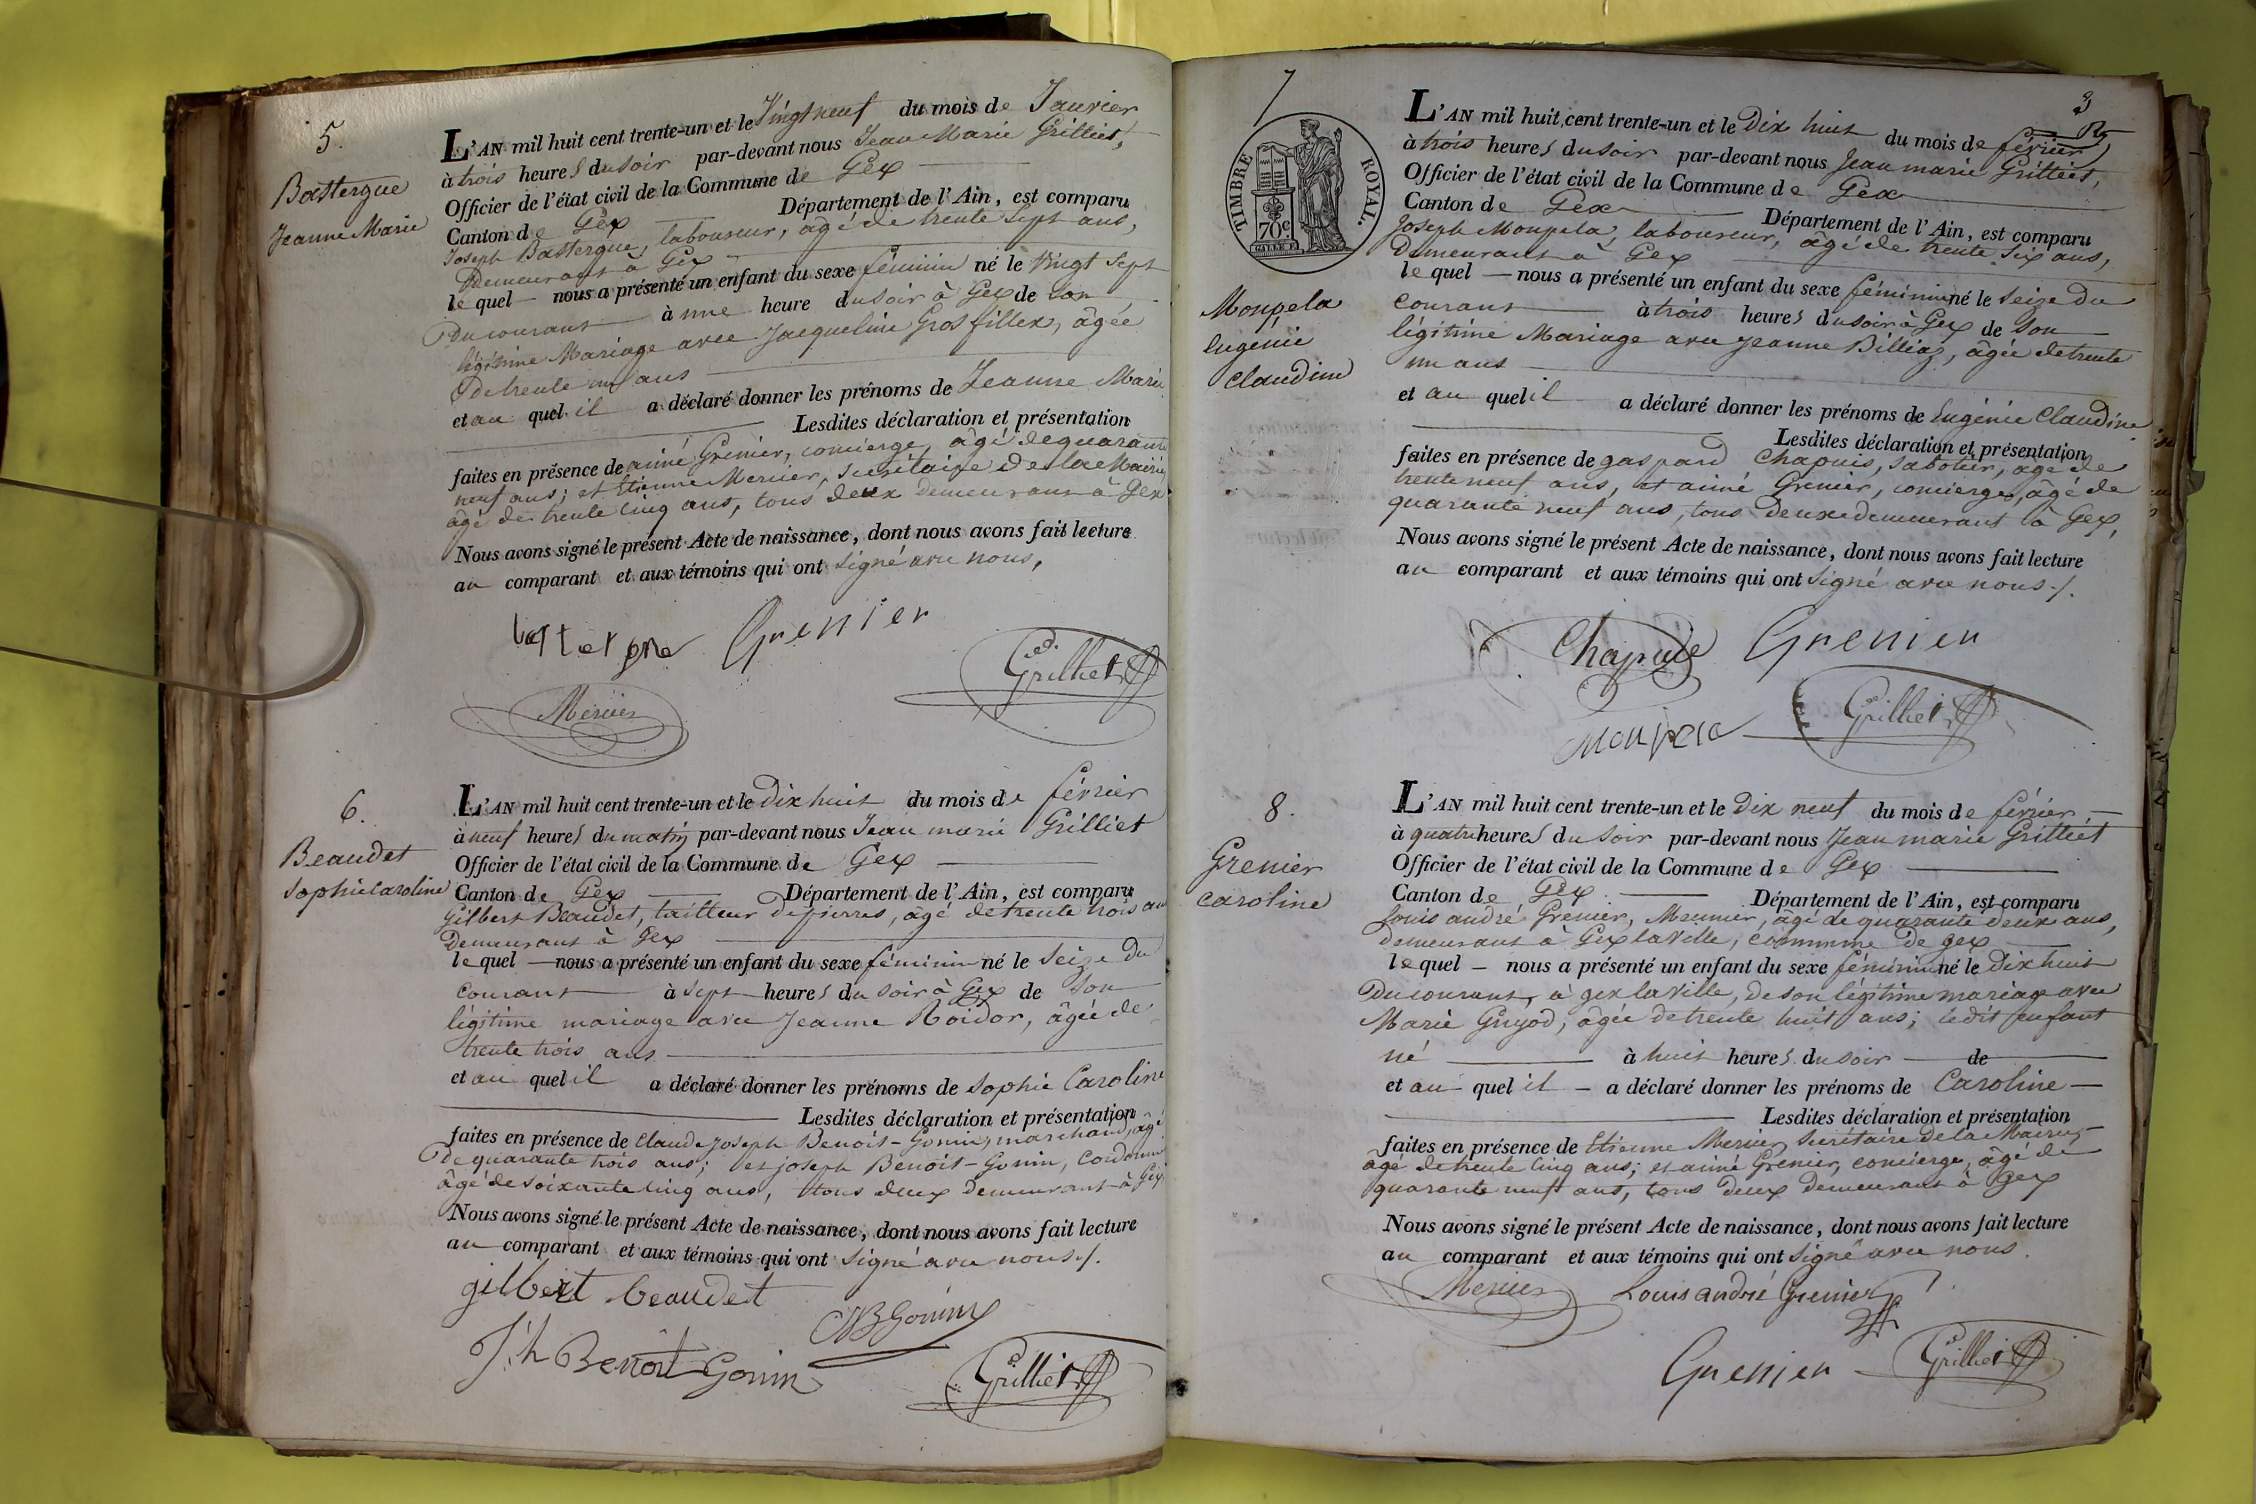 5.
Bastergue
Jeanne Marie
L'AN mil huit cent trente-un et le Vingt neuf du mois de Janvier
à trois heures du soir par-devant nous Jean Marie Grilliet,
Officier de l'état civil de la Commune de Gex
Canton de Gex Département de l'Ain, est comparu
Joseph Bastergue, laboureur, âgé de trente sept ans,
Demeurant à Gex
le quel nous a présenté un enfant du sexe féminin né le Vingt sept
Du courant à une heure du soir à Gex de son
légitime Mariage avec Jacqueline Grosfillex, âgée
De trente un ans
et au quel il a déclaré donner les prénoms de Jeanne Marie
Lesdites déclaration et présentation
faites en présence de aimé Grenier, concierge, âgé de quarante
neuf ans; et Etienne Mercier, secrétaire de la Mairie,
âgé de trente cinq ans, tous deux demeurant à Gex
Nous avons signé le présent Acte de naissance, dont nous avons fait lecture
au comparant et aux témoins qui ont signé avec nous,
Grenier
Grilliet
Mercier
6.
Beaudet
Sophie Caroline
L'AN mil huit cent trente-un et le Dix huit du mois de février
à neuf heures du matin par-devant nous Jean marie Grilliet
Officier de l'état civil de la Commune de Gex
Canton de Gex Département de l'Ain, est comparu
Gilbert Beaudet, tailleur De pierres, âgé de trente trois ans
Demeurant à Gex
le quel nous a présenté un enfant du sexe féminin né le Seize Du
courant à Sept heures du soir à Gex de son
légitime mariage avec Jeanne Roidor, âgée de
trente trois ans
et au quel il a déclaré donner les prénoms de Sophie Caroline
Lesdites déclaration et présentation
faites en présence de Claude Joseph Benoit-Gonin, marchand, âgé
De quarante trois ans; et joseph Benoit-Gonin, Cordonnier
âgé de soixante cinq ans, tous deux demeurant à Gex
Nous avons signé le présent Acte de naissance, dont nous avons fait lecture
au comparant et aux témoins qui ont signé avec nous./.
gilbert beaudet
Jh Benoit Gonin
Grilliet
3
7
TIMBRE ROYAL.
70c
Monpela
Eugénie
Claudine
L'AN mil huit cent trente-un et le Dix huit du mois de février
à trois heures du soir par-devant nous Jean marie Grilliet,
Officier de l'état civil de la Commune de Gex
Canton de Gex Département de l'Ain, est comparu
Joseph Monpela, laboureur, âgé de trente six ans,
Demeurant à Gex
le quel nous a présenté un enfant du sexe féminin né le Seize Du
courant à trois heures du soir à Gex de Son
légitime Mariage avec Jeanne Billiaz, âgée de trente
un ans
et au quel il a déclaré donner les prénoms de Eugénie Claudine
Lesdites déclaration et présentation
faites en présence de gaspard Chapuis, sabotier, âgé de
trente neuf ans, et aimé Grenier, concierge, âgé de
quarante neuf ans, tous deux demeurant à Gex,
Nous avons signé le présent Acte de naissance, dont nous avons fait lecture
au comparant et aux témoins qui ont Signé avec nous./.
Grenier
Grilliet
8.
Grenier
Caroline
L'AN mil huit cent trente-un et le Dix neuf du mois de février
à quatre heures du Soir par-devant nous Jean marie Grilliet
Officier de l'état civil de la Commune de Gex
Canton de Gex Département de l'Ain, est comparu
Louis andré Grenier, Meunier, âgé de quarante deux ans,
demeurant à Gex la Ville, commune de gex
le quel nous a présenté un enfant du sexe féminin né le Dix huit
Du courant, à gex la Ville, de son légitime mariage avec
Marie Guyod, âgée de trente huit ans; ledit enfant
né à huit heures du soir de
et au quel il a déclaré donner les prénoms de Caroline
Lesdites déclaration et présentation
faites en présence de Etienne Mercier, Secrétaire de la Mairie,
âgé de trente cinq ans; et aimé Grenier, concierge, âgé de
quarante neuf ans, tous deux demeurant à Gex
Nous avons signé le présent Acte de naissance, dont nous avons fait lecture
au comparant et aux témoins qui ont Signé avec nous.
Mercier Louis andré Grenier
Grenier Grilliet